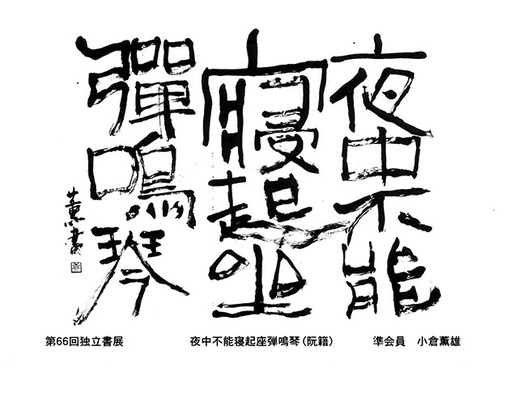 夜中不能
寢起坐
彈鳴琴
薫書
第66回独立書展　夜中不能寝起座弾鳴琴（阮籍）　準会員　小倉薫雄